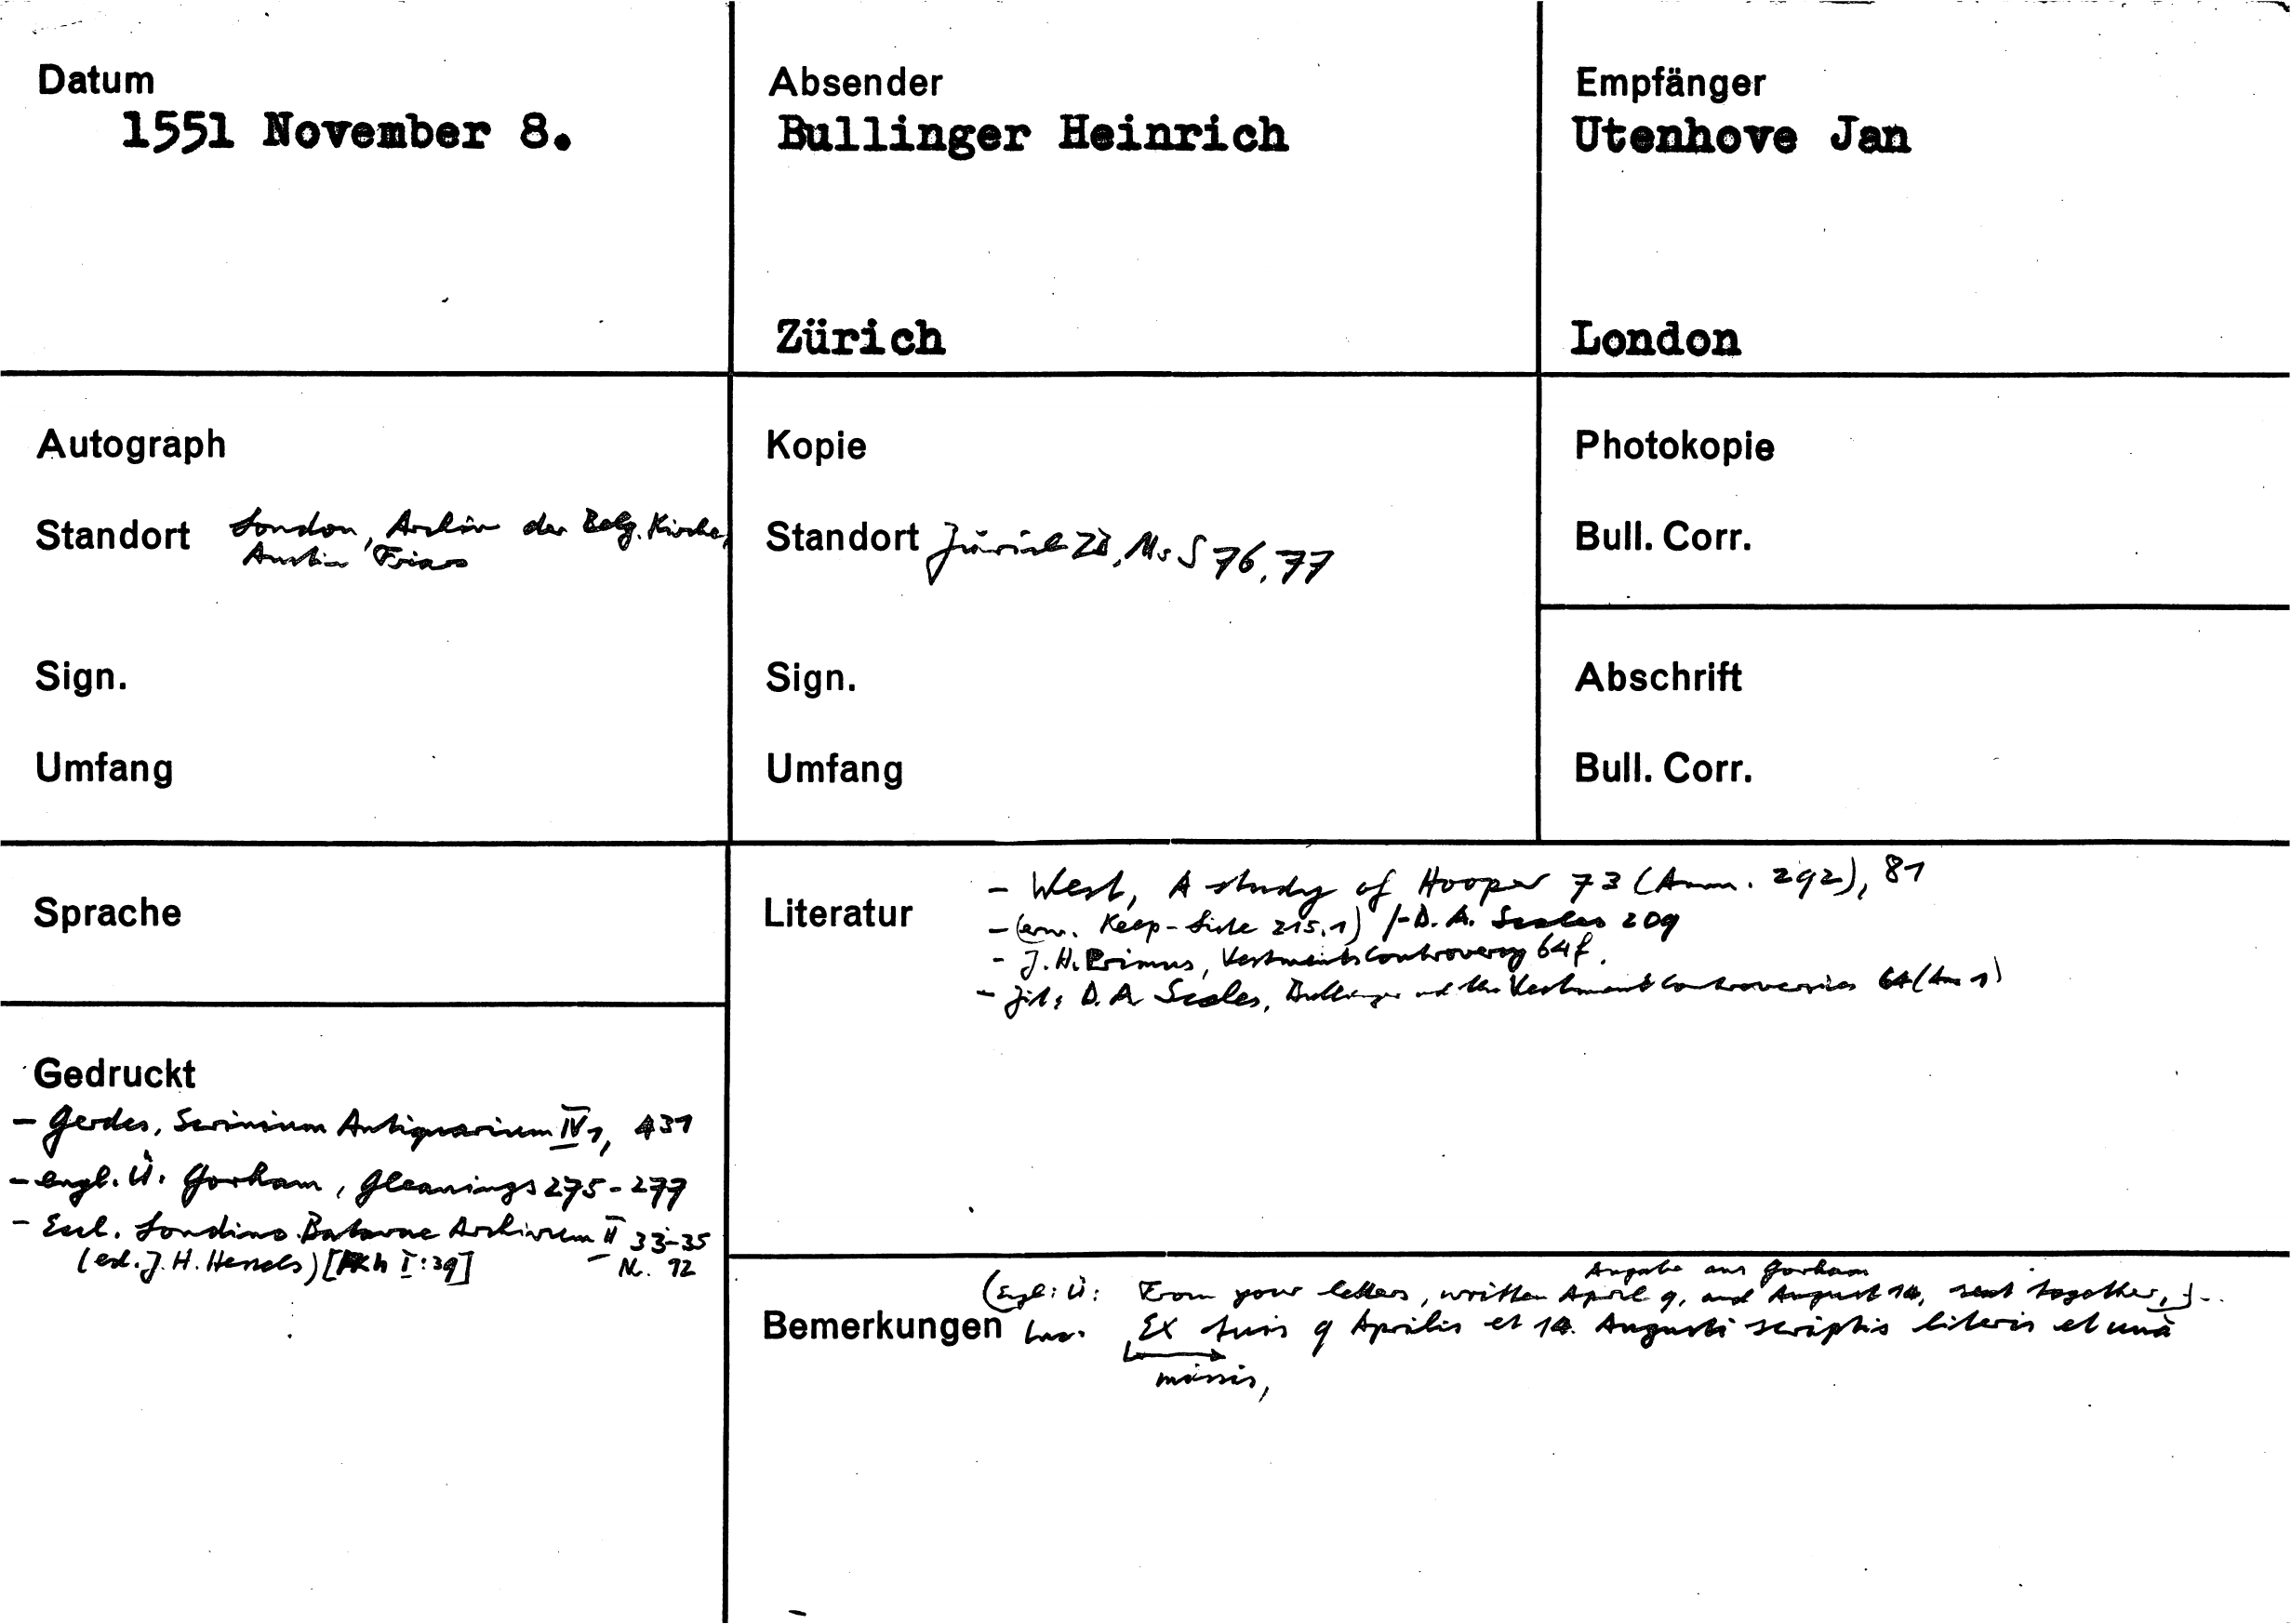 Datum
1551 November 8.
Absender
Bullinger Heinrich
Zürich
Empfänger
Utenhove Jan
London
Autograph
Standort London, Archiv der Belg. Kirche,
Austin Friars
Sign.
Umfang
Kopie
Standort Zürich ZB, Ms S 76, 77
Sign.
Umfang
Photokopie
Bull. Corr.
Abschrift
Bull. Corr.
Sprache
Gedruckt
- Gerdes, Scrinium Antiquarium IV 1, 431
- engl. Ü. Gorham, Gleanings 275-277
- Eccl. Londino Batavae Archivum II 33-35
(ed. J. H. Hessels) [RKh I:39] - Nr. 12
Literatur
- West, A study of Hooper 73 (Anm. 292), 81
- (erw. Keep-Liste 215,1) /- D. A. Scales 209
- J. H. Primus, Vestments Controversy 64f.
- Zit: D. A. Scales, Bullinger and the Vestment Controversies 64 (Anm 1)
Bemerkungen
Angabe aus Gorham
(Engl. Ü: From your letters, written April 9, and August 14, sent together,)...
Inc. Ex tuis 9 Aprilis et 14. Augusti scriptis literis et unà
missis,